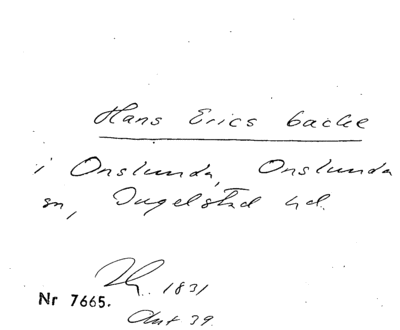 Hans Erics backe
i Onslunda, Onslunda
sn, Ingelstad hd.
1831
Nr 7665.
Akt 39